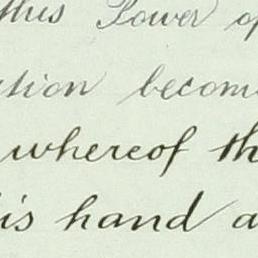 this Power of
ation become
whereof th
is hand a